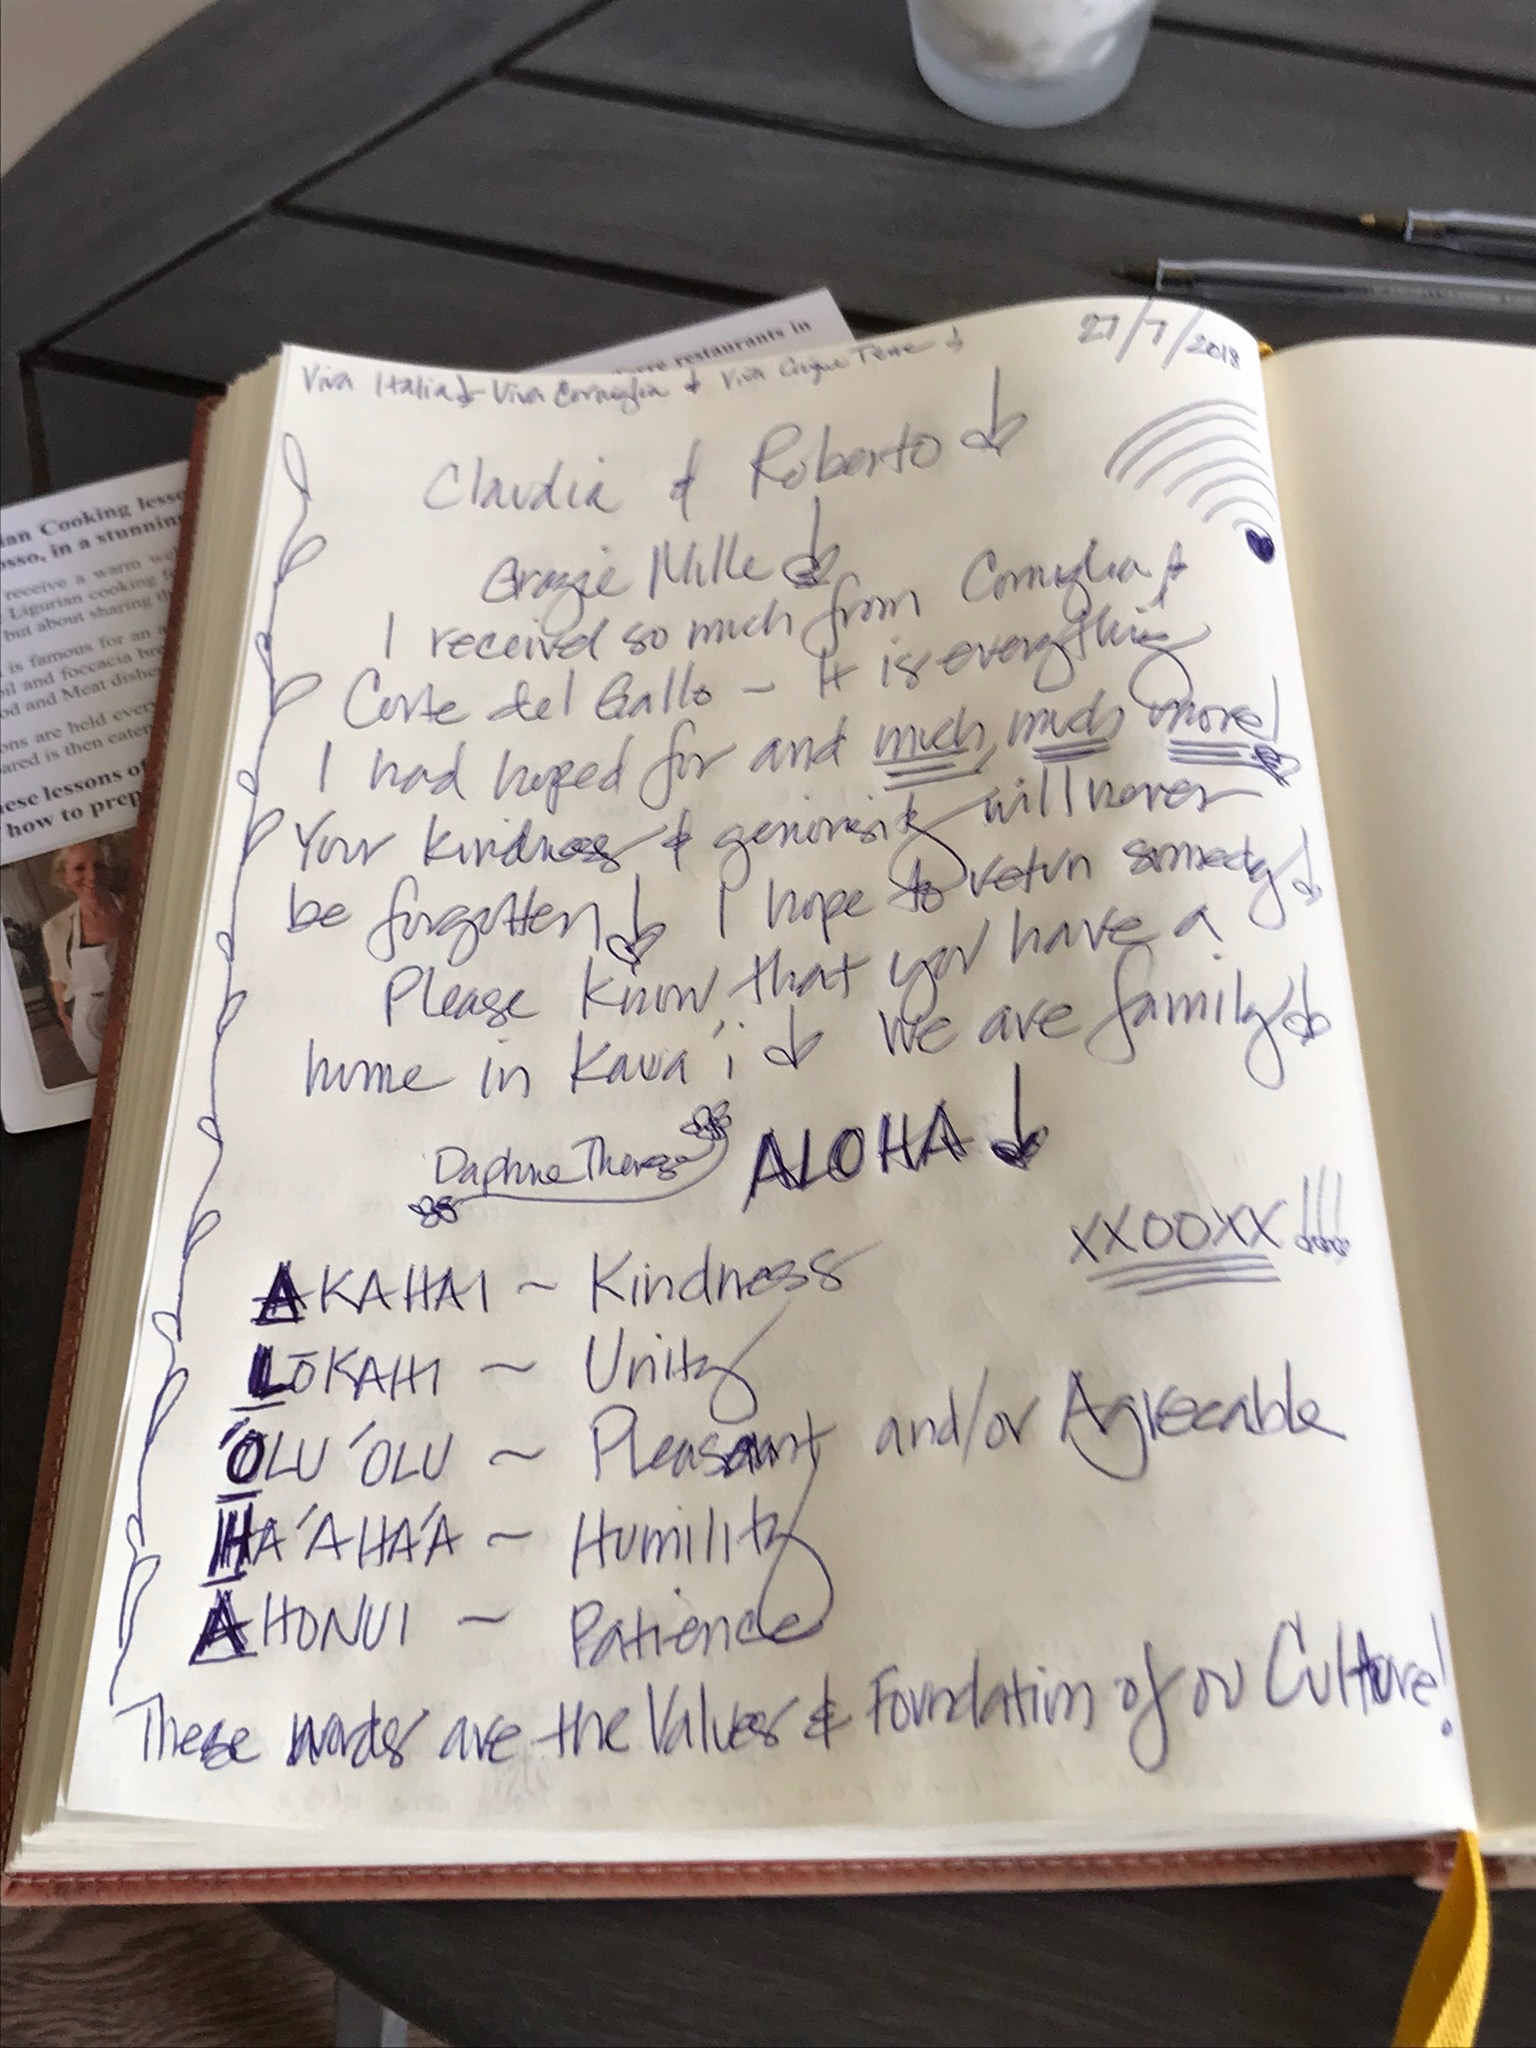 27/7/2018
Viva Italia! Viva Corneglia & Viva Cinque Terre!
Claudia & Roberto!
Grazie Mille!
I received so much from Corniglia &
Corte del Gallo ~ It is everything
I had hoped for and much, much more!
Your kindness & generosity will never
be forgotten! I hope to return someday!
Please know that you have a
home in Kaua'i! We are family!
Daphne Theresa ALOHA!
XXOOXX!!!
AKAHAI ~ Kindness
LŌKAHI ~ Unity
'OLU 'OLU ~ Pleasant and/or Agreeable
HA'AHA'A ~ Humility
AHONUI ~ Patience
These words are the Values & Foundation of our Culture!
restaurants in
ian Cooking lesso
osso, in a stunning
receive a warm we
Ligurian cooking
but about sharing th
is famous for an
oil and foccacia bre
od and Meat dishe
ons are held every
ared is then eaten
ese lessons of
how to prep